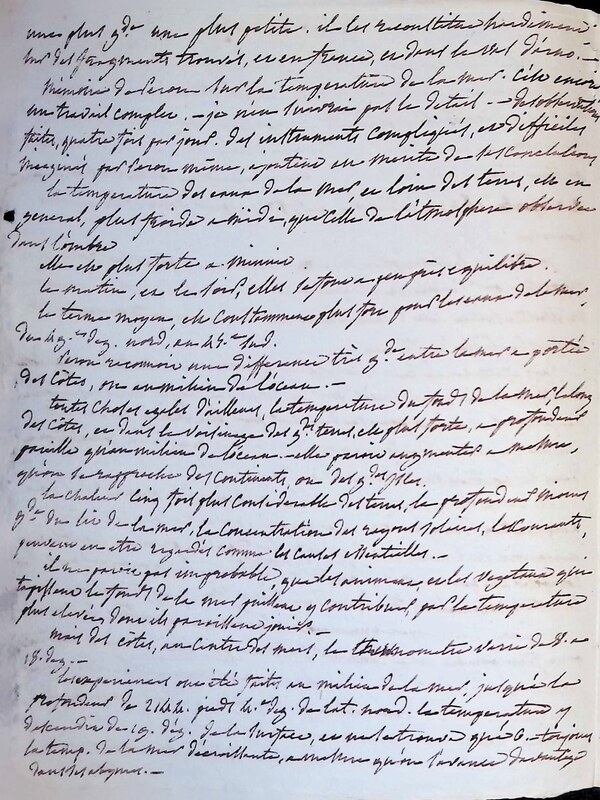 une plus gde une plus petite. il les reconstitue hardiment
sur des fragments trouvés, et en france, et dans le
Mémoire de Peron sur la temperature de la mer. C'est encore
un travail complet. — je n'en suivrai pas le detail — des observations
faites, quatre fois par jour. des instruments compliqués, et difficiles
par Peron même, ajoutent au merite de ses conclusions
la temperature des eaux de la mer, et loin des terres, est en
general, plus froide a midi, que celle de l'atmosphere observée
dans l'ombre
elle est plus forte a minuit
le matin, et le soir, elles se font a peu près equilibre.
le terme moyen, est constamment plus fort pour les eaux de la mer,
du 49.e deg. nord, au 45.e sud.
Peron reconnoit une difference très gde entre la mer a portée
des côtes, ou au milieu de l'océan. —
toutes choses egales d'ailleurs, la temperature du fond de la mer, le long
des côtes, et dans le voisinage des gdes terres, est plus forte, a profondeur
pareille qu'au milieu de l'océan. — elle paroit augmenter a mesure,
qu'on se rapproche des continents, ou des gdes isles.
la chaleur cinq fois plus considerable des terres, la profondeur moins
gde du lit de la mer, la concentration des rayons solaires, les courants,
peuvent en etre regardés comme les causes essentielles. —
il ne paroit pas improbable, que les animaux, et les vegetaux qui
tapissent le fond de la mer puissent y contribuer, par la temperature
plus elevée, dont ils paroissent jouir. —
mais des côtes, au centre des mers, le thermometre varie de 8. a
18. deg. —
les experiences ont été faites au milieu de la mer, jusqu'à la
profondeur de 2144. pieds 4.e deg. de lat. nord. la temperature y
descendit de 19. deg. de la surface, et ne se trouva que 6. — toujours
la temp. de la mer décroissante, a mesure qu'on s'avance davantage
dans les abymes. —